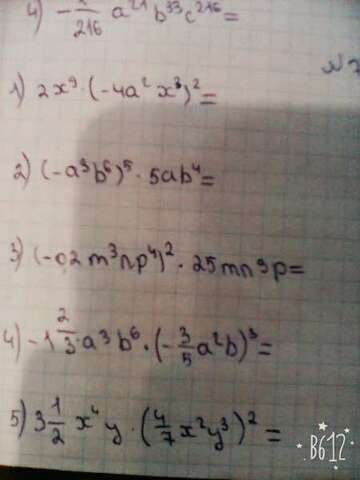 4) -1/216 a²¹b³³c²¹⁶=
№7
1) 2x⁹·(-4a²x³)²=
2) (-a³b⁶)⁵·5ab⁴=
3) (-0,2m³np⁴)²·25mn9p=
4) -1 2/3·a³b⁶·(-3/5a²b)³=
5) 3 1/2 x⁴y·(4/7x²y³)²=
B612